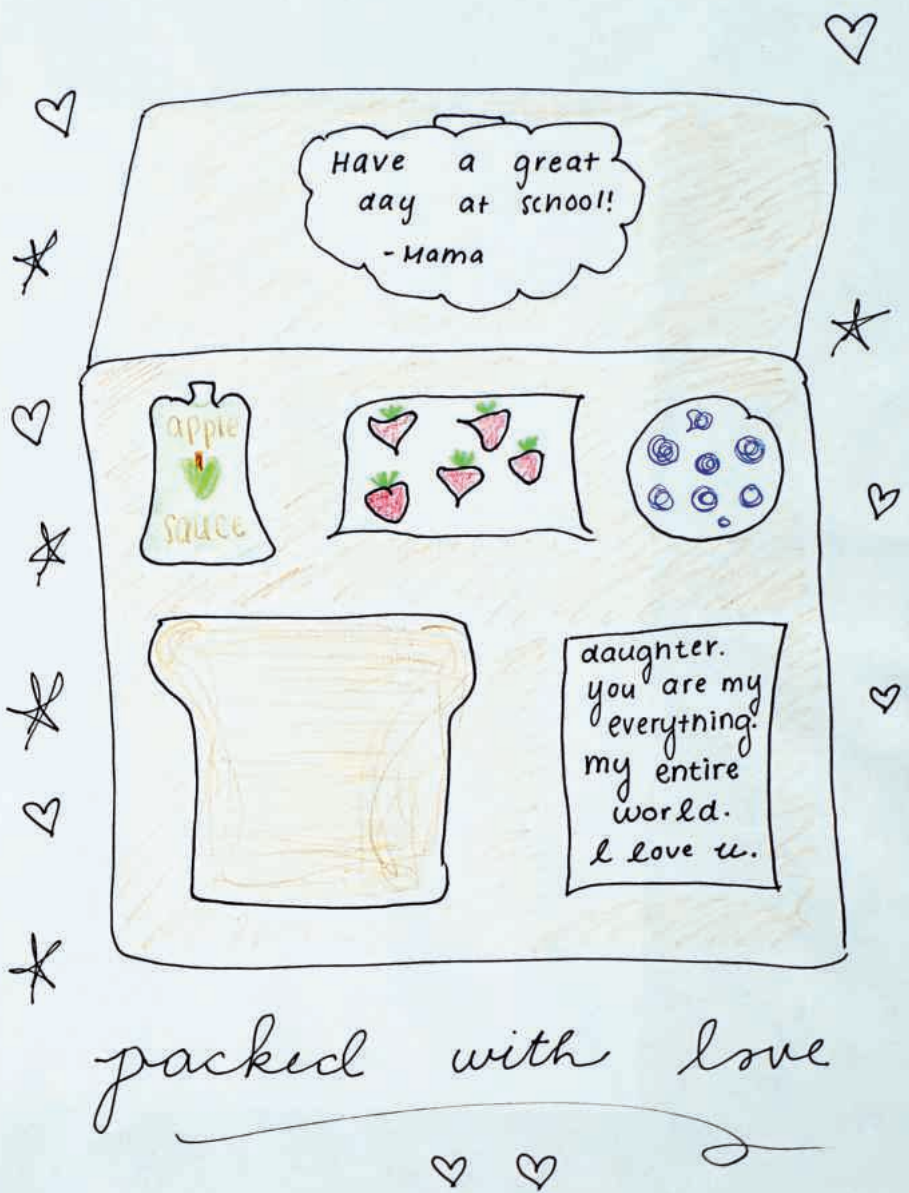 Have a great
day at school!
-Mama
apple
sauce
daughter.
you are my
everything.
my entire
world.
I love u.
packed with love